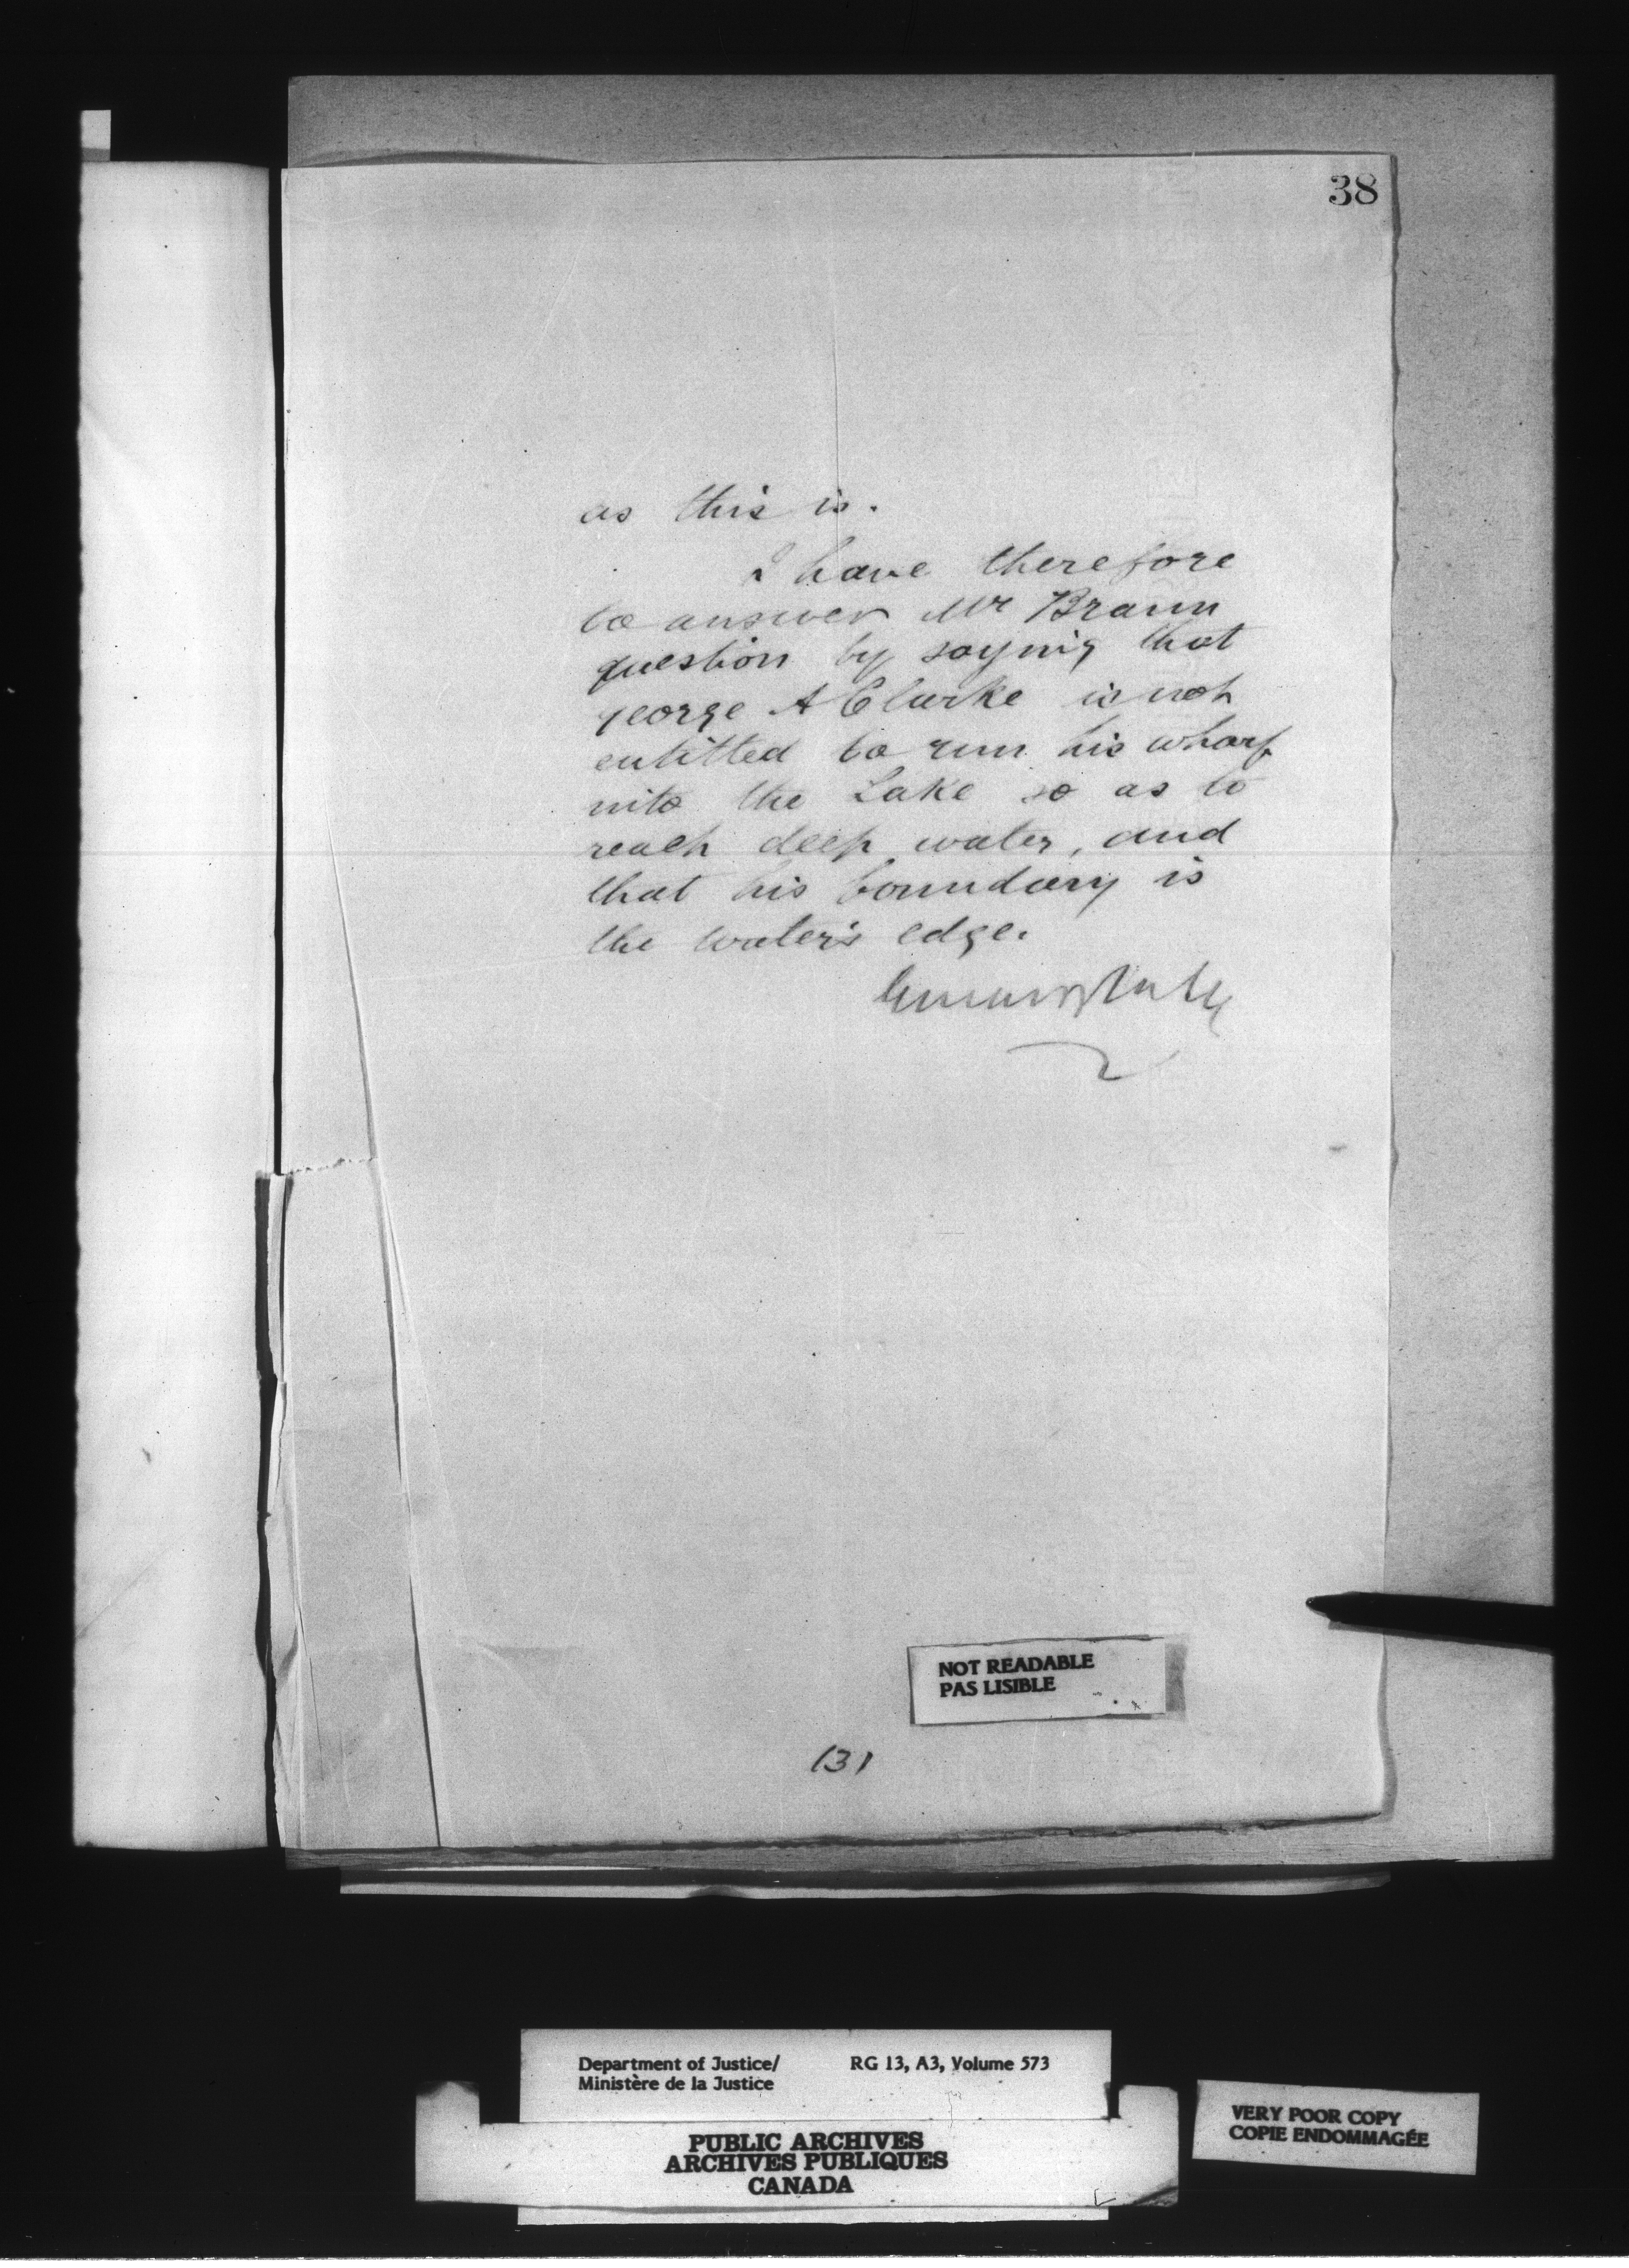 38
as this is.
I have therefore
to answer Mr Braun
question by saying that
george A Clarke is not
entitled to run his wharf
into the Lake so as to
reach deep water, and
that his boundary is
the water's edge.
NOT READABLE
PAS LISIBLE
131
Department of Justice/ RG 13, A3, Volume 573
Ministère de la Justice
PUBLIC ARCHIVES
ARCHIVES PUBLIQUES
CANADA
VERY POOR COPY
COPIE ENDOMMAGÉE